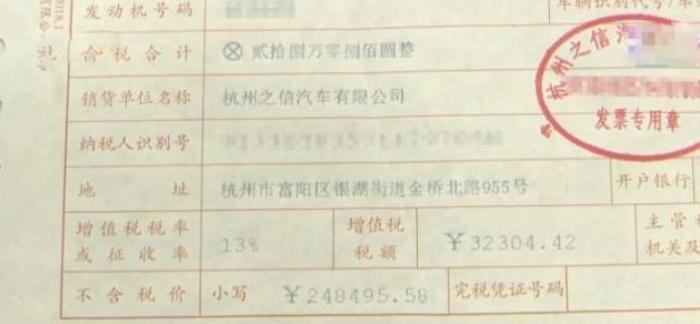 发动机号码
车辆识别代号/车
价税合计 ⊗ 贰拾捌万零捌佰圆整
销货单位名称 杭州之信汽车有限公司
杭州之信汽
发票专用章
纳税人识别号
地址 杭州市富阳区银湖街道金桥北路955号 开户银行
增值税税率或征收率 13% 增值税税额 ￥32304.42 主管
机关及
不含税价 小写 ￥248495.58 完税凭证号码